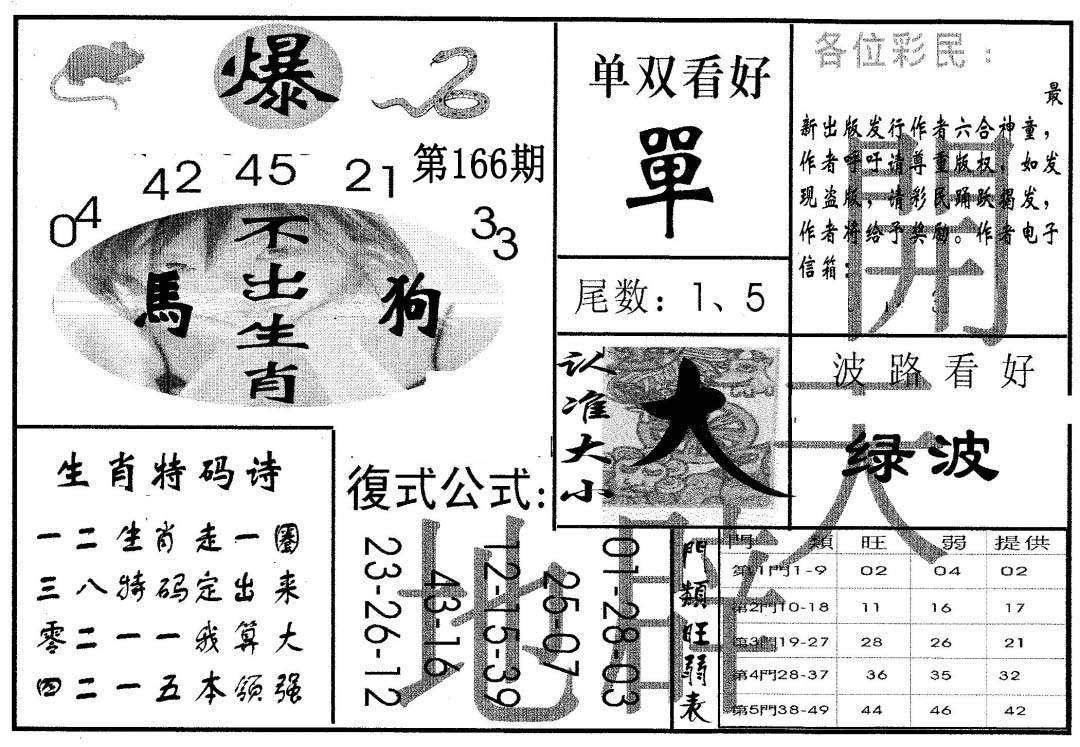 爆
第166期
04 42 45 21 33
不出生肖
馬 狗
单双看好
單
尾数：1、5
各位彩民：
最
新出版发行作者六合神童，
作者呼吁请尊重版权，如发
现盗版，请彩民踊跃揭发，
作者将给予奖励。作者电子
信箱：
认准大小
大
波路看好
绿波
開天闢地
生肖特码诗
一二生肖走一圈
三八特码定出来
零二一一我算大
四二一五本领强
復式公式：
23-26-12
43-16
12-15-39
25-07
01-28-03
門類旺弱表
門類 旺 弱 提供
第1門1-9 02 04 02
第2門10-18 11 16 17
第3門19-27 28 26 21
第4門28-37 36 35 32
第5門38-49 44 46 42